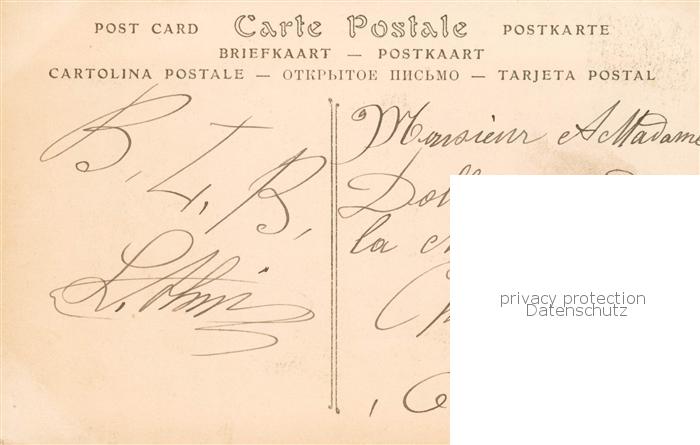 POST CARD Carte Postale POSTKARTE
BRIEFKAART — POSTKAART
CARTOLINA POSTALE — ОТКРЫТОЕ ПИСЬМО — TARJETA POSTAL
B. T. B.
Monsieur & Madame
la
privacy protection
Datenschutz